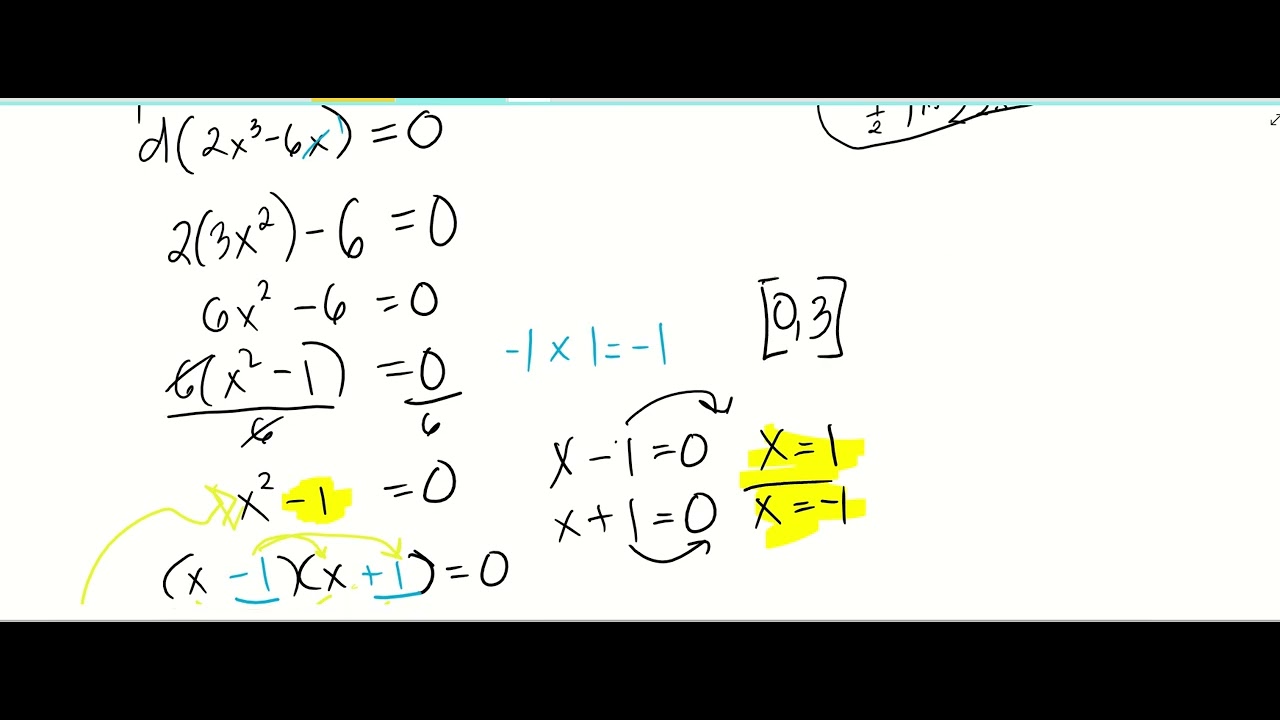 d(2x³-6x¹)=0
2(3x²)-6=0
6x²-6=0
6(x²-1)/6=0/6
x²-1=0
(x-1)(x+1)=0
-1x1=-1
[0,3]
x-1=0 x=1
x+1=0 x=-1